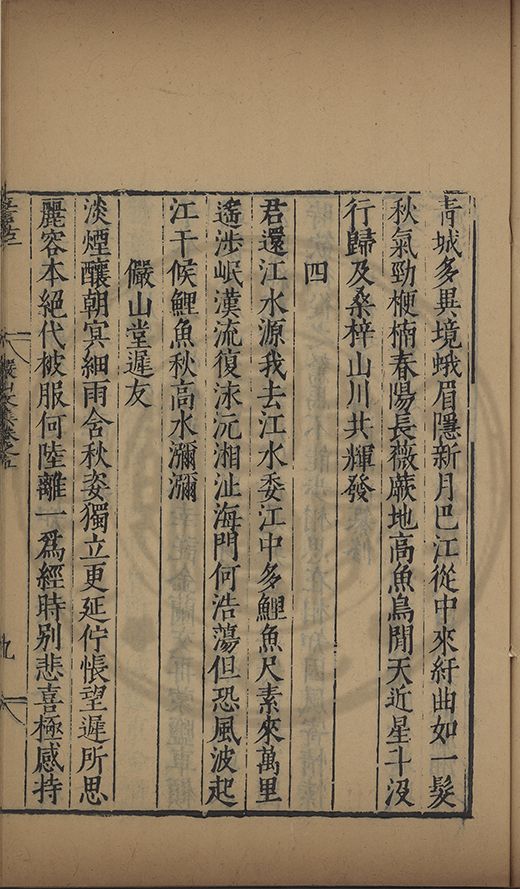 青城多異境蛾眉隱新月巴江從中來紆曲如一髮
秋氣勁楩楠春陽長薇蕨地高魚鳥閒天近星斗沒
行歸及桑梓山川共輝發
四
君還江水源我去江水委江中多鯉魚尺素來萬里
遙涉岷漢流復泳沅湘沚海門何浩蕩但恐風波起
江干候鯉魚秋高水瀰瀰
儼山堂遲友
淡煙釀朝寅細雨含秋姿獨立更延佇悵望遲所思
麗容本絕代被服何陸離一爲經時别悲喜極感持
九